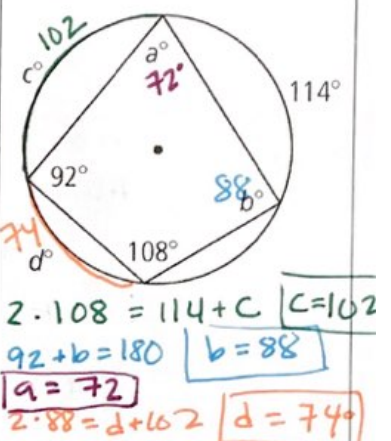 102
c°
a°
72°
114°
92°
88
b°
74
d°
108°
2·108 = 114+C C=102
92+b=180 b=88
a=72
2·88=d+102 d=74°